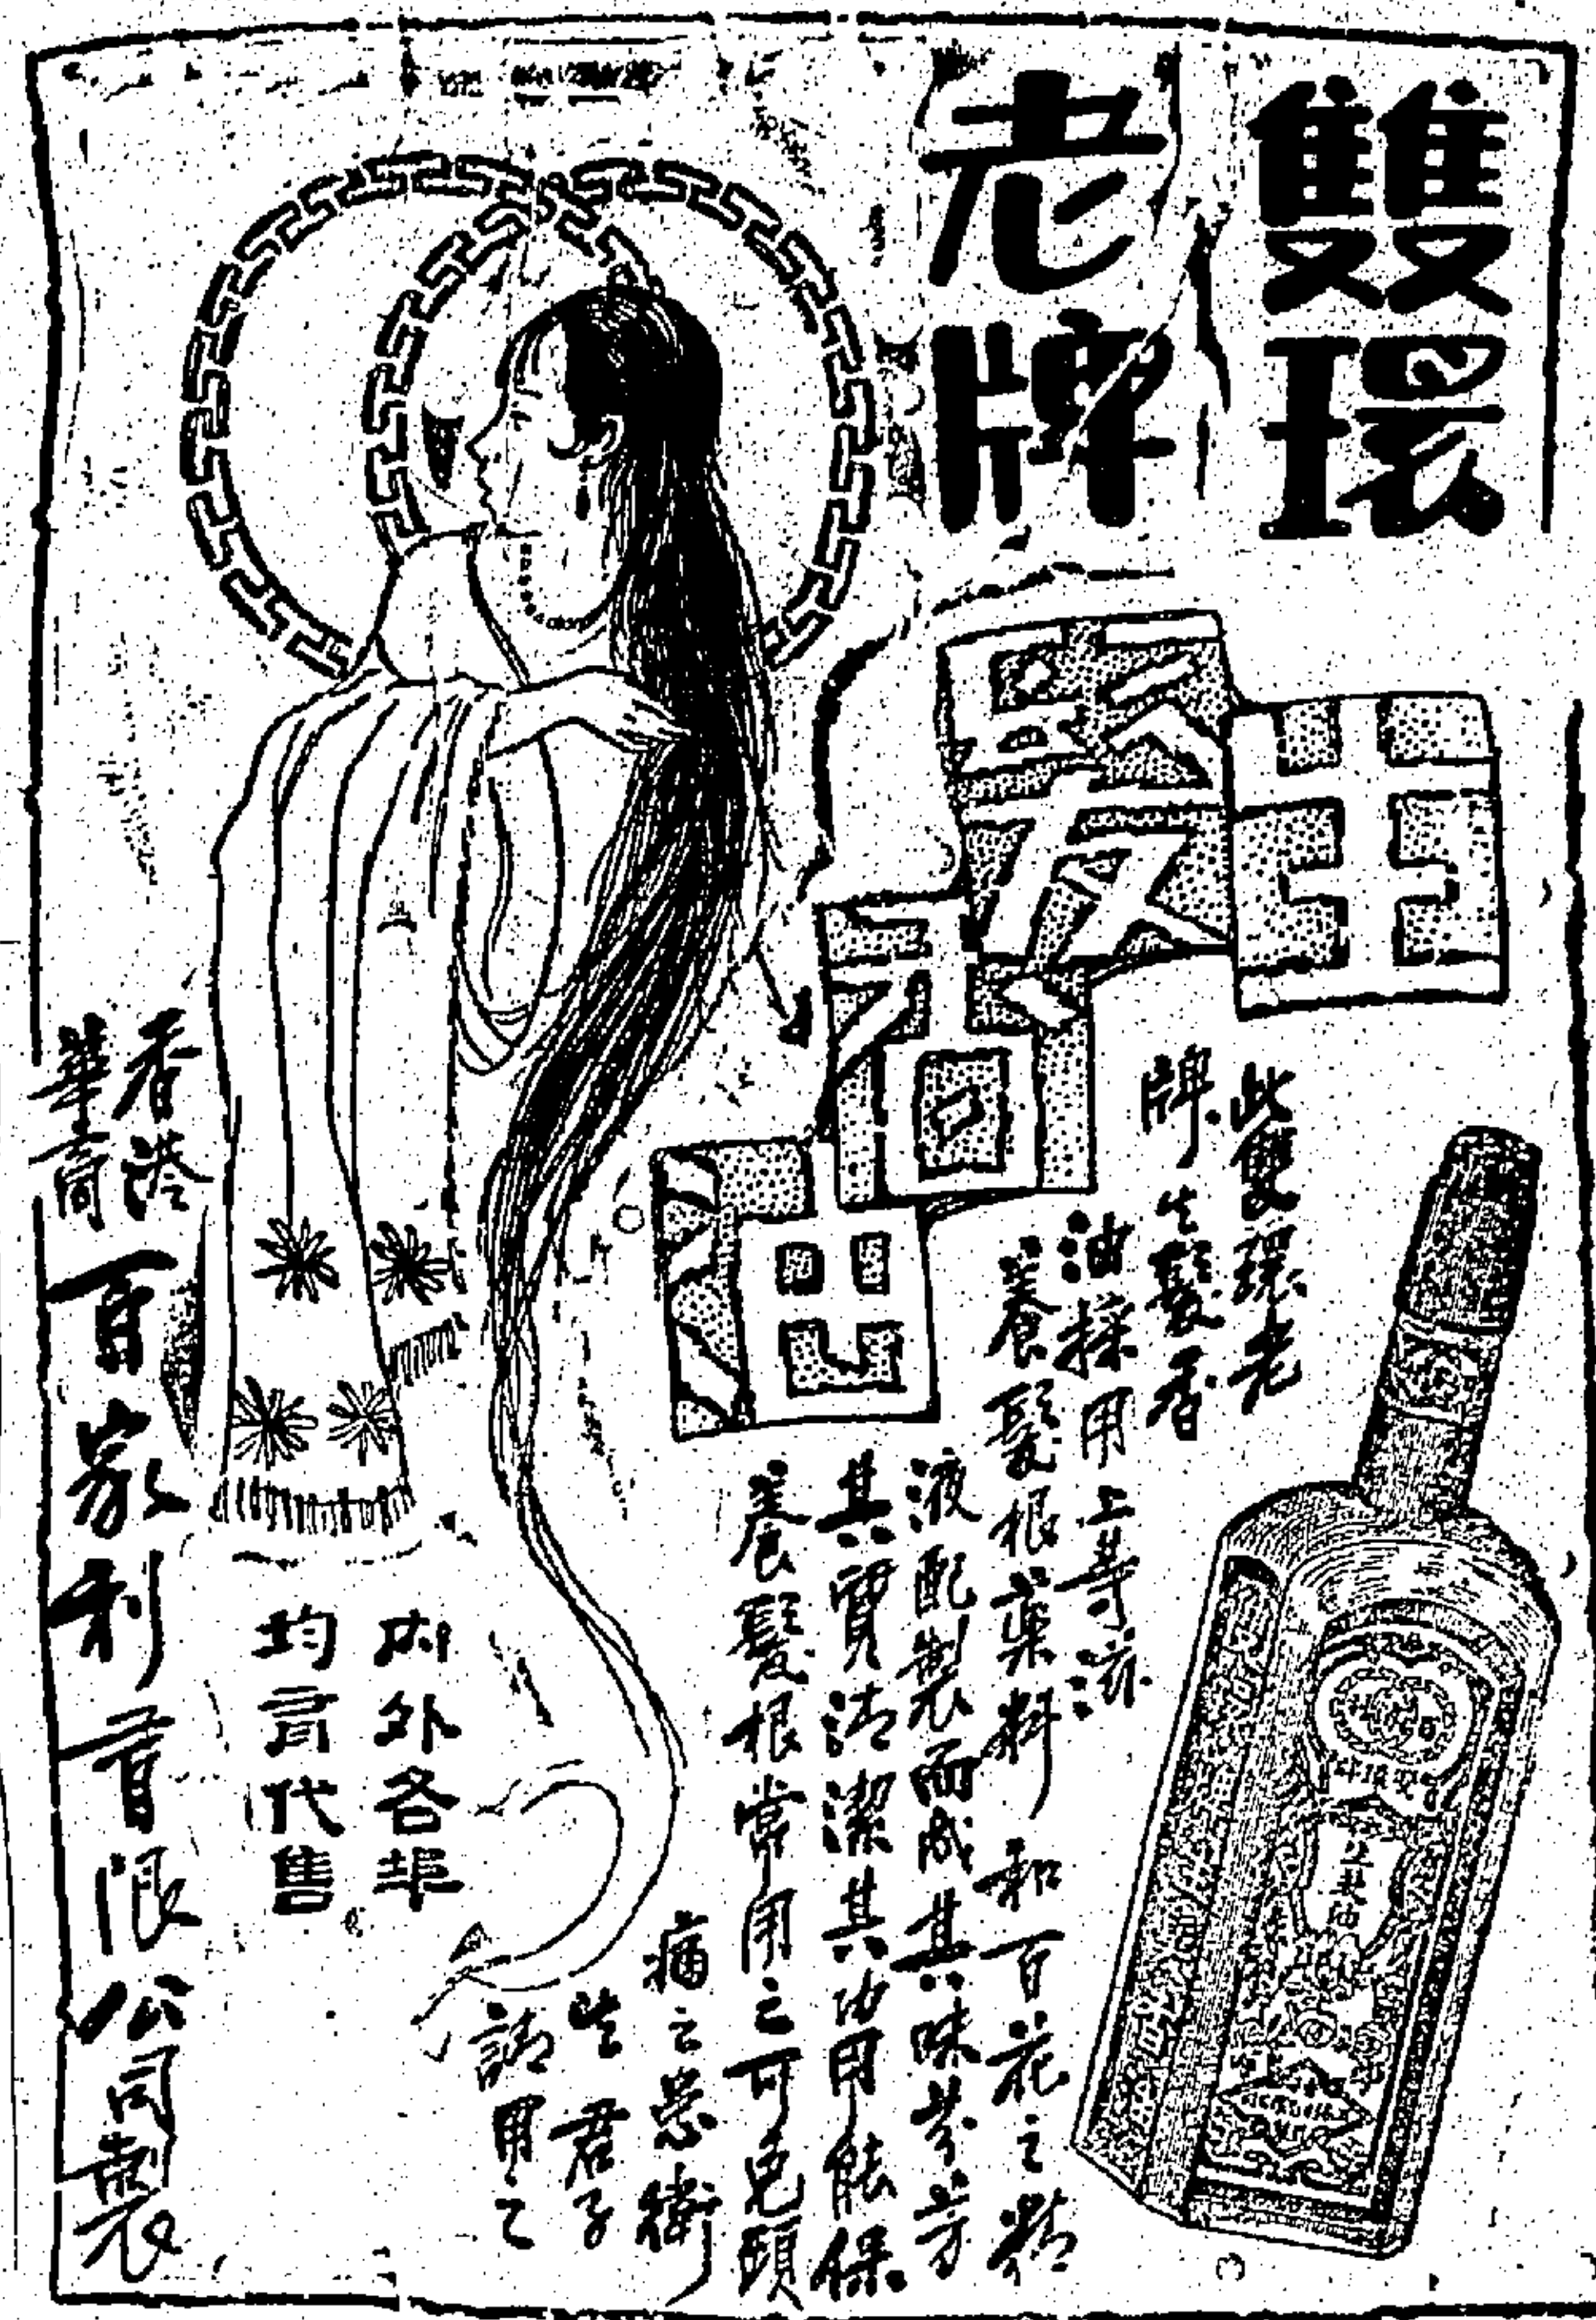 雙環
老牌
生髮香油
此雙環老
牌生髮香
油採用上等滋
養髮根藥料和百花之精
液配製而成其味芬芳
其質清潔其功用能保
養髮根常用之可免頭
痛之患衛
生君子
請用之
内外各埠
均有代售
香港
華商
百家利有限公司製